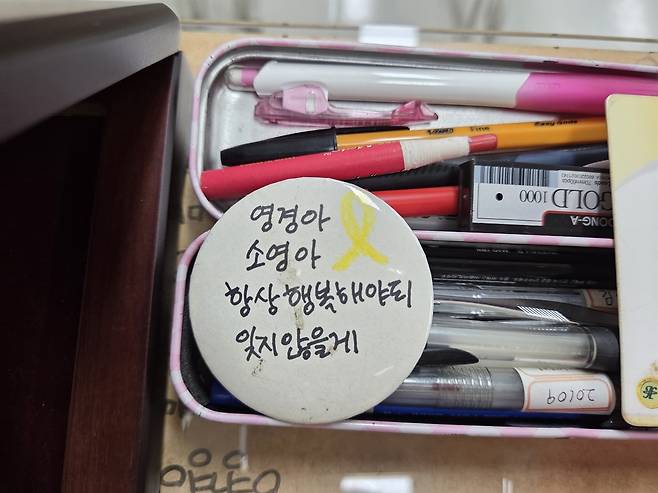 영경아
소영아
항상 행복해야되
잊지않을게
Fine
GOLD 1000
DONG-A
20109